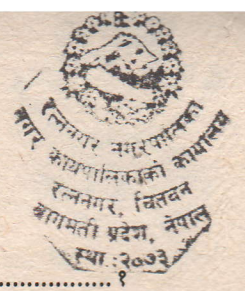 रत्ननगर नगरपालिका
नगर कार्यपालिकाको कार्यालय
रत्ननगर, चितवन
बागमती प्रदेश, नेपाल
स्था :२०७३
१